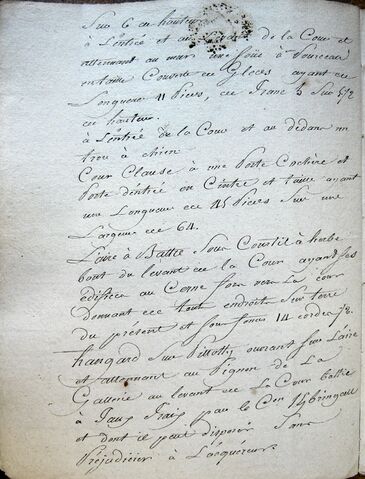 Sur 6 en hauteur
à L'entrée et au de la Cour et
attennant au mur une à Pourceau
Couverte en Gloces ayant en
Longueur 11 Pieces, en franc 5 Sur 5 1/2
en hauteur.
à L'entrée de la Cour et au dedans un
trou à chien
Cour Clause à une Porte Cochère et
Porte d'entrée en Cintre et ayant
une Longueur de 45 Pieces Sur une
Largeur de 64.
L'aire à Battre Sous Courtil à herbe
bout du levant de la Cour ayant ses
édifices au Corne four vers La Cour
dennant de tout endroit Sur terre
du présent et Sous fonds 14 cordes 7/8.
hangard Sur ouvrant Sur L'aire
et attennant au Pignon de La
au levant de La Cour
à par le
et dont il peut disposer Sans
Préjudicier à L'acquéreur.